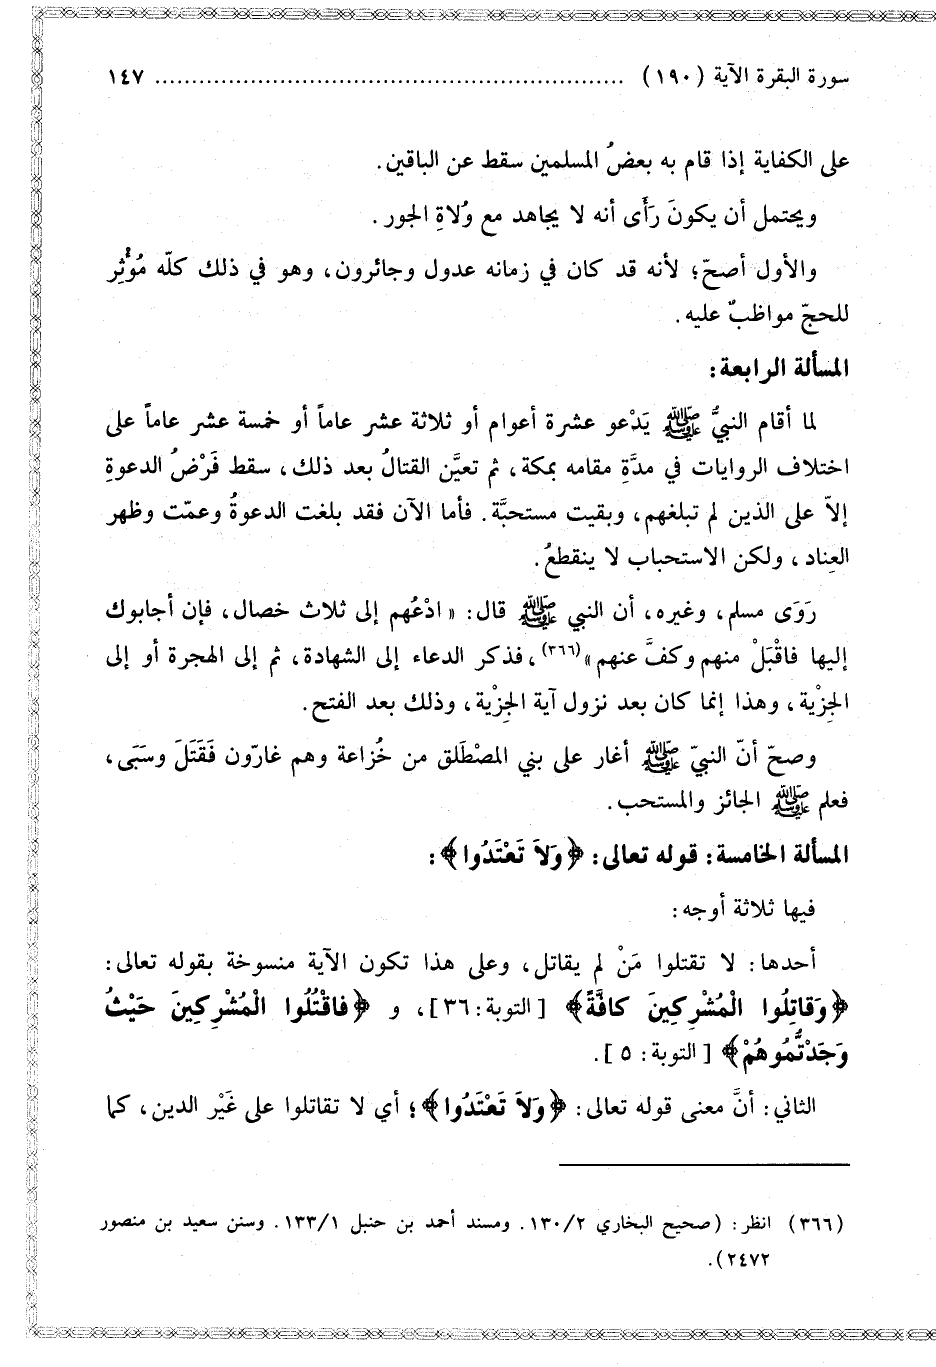 سورة البقرة الآية (١٩٠) ............................................................ ١٤٧
على الكفاية إذا قام به بعضُ المسلمين سقط عن الباقين.
ويحتمل أن يكونَ رَأَى أنه لا يجاهد مع وُلاةِ الجور.
والأول أصحّ؛ لأنه قد كان في زمانه عدول وجائرون، وهو في ذلك كلّه مُؤْثِر
للحجّ مواظبٌ عليه.
المسألة الرابعة:
لما أقام النبيُّ ﷺ يَدْعو عشرة أعوام أو ثلاثة عشر عاماً أو خمسة عشر عاماً على
اختلاف الروايات في مدَّةِ مقامه بمكة، ثم تعيَّن القتالُ بعد ذلك، سقط فَرْضُ الدعوةِ
إلاّ على الذين لم تبلغهم، وبقيت مستحبَّة. فأما الآن فقد بلغت الدعوةُ وعمّت وظهر
العِناد، ولكن الاستحباب لا ينقطعُ.
رَوَى مسلم، وغيره، أن النبي ﷺ قال: «ادْعُهم إلى ثلاث خصال، فإن أجابوك
إليها فاقْبَلْ منهم وكفَّ عنهم»(٣٦٦)، فذكر الدعاء إلى الشهادة، ثم إلى الهجرة أو إلى
الجِزْية، وهذا إنما كان بعد نزول آية الجِزْية، وذلك بعد الفتح.
وصحّ أنّ النبيّ ﷺ أغار على بني المصْطَلق من خُزاعة وهم غارّون فَقَتَلَ وسَبَى،
فعلم ﷺ الجائز والمستحب.
المسألة الخامسة: قوله تعالى: ﴿وَلاَ تَعْتَدُوا﴾:
فيها ثلاثة أوجه:
أحدها: لا تقتلوا مَنْ لم يقاتل، وعلى هذا تكون الآية منسوخة بقوله تعالى:
﴿وَقاتِلُوا الْمُشْرِكِينَ كافَّةً﴾ [التوبة: ٣٦]، و ﴿فاقْتُلُوا الْمُشْرِكِينَ حَيْثُ
وَجَدْتُّمُوهُمْ﴾ [التوبة: ٥].
الثاني: أنَّ معنى قوله تعالى: ﴿وَلاَ تَعْتَدُوا﴾؛ أي لا تقاتلوا على غَيْر الدين، كما
(٣٦٦) انظر: (صحيح البخاري ١٣٠/٢. ومسند أحمد بن حنبل ١٣٣/١. وسنن سعيد بن منصور
٢٤٧٢).